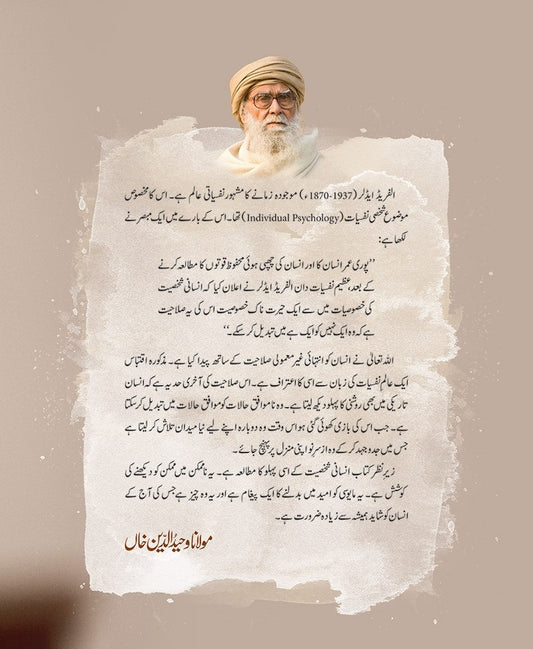 الفریڈ ایڈلر (1937-1870ء) موجودہ زمانے کا مشہور نفسیاتی عالم ہے۔ اس کا مخصوص
موضوع شخصی نفسیات (Individual Psychology) تھا۔ اس کے بارے میں ایک مبصر نے
لکھا ہے:
’’پوری عمر انسان کا اور انسان کی چھپی ہوئی محفوظ قوتوں کا مطالعہ کرنے
کے بعد، عظیم نفسیات دان الفریڈ ایڈلر نے اعلان کیا کہ انسانی شخصیت
کی خصوصیات میں سے ایک حیرت ناک خصوصیت اس کی یہ صلاحیت
ہے کہ وہ ایک نہیں کو ایک ہے میں تبدیل کر سکے۔‘‘
اللہ تعالیٰ نے انسان کو انتہائی غیر معمولی صلاحیت کے ساتھ پیدا کیا ہے۔ مذکورہ اقتباس
ایک عالم نفسیات کی زبان سے اسی کا اعتراف ہے۔ اس صلاحیت کی آخری حد یہ ہے کہ انسان
تاریکی میں بھی روشنی کا پہلو دیکھ لیتا ہے۔ وہ ناموافق حالات کو موافق حالات میں تبدیل کر سکتا
ہے۔ جب اس کی بازی کھوئی گئی ہو اس وقت وہ دوبارہ اپنے لیے نیا میدان تلاش کر لیتا ہے
جس میں جدوجہد کر کے وہ از سر نو اپنی منزل پر پہنچ جائے۔
زیر نظر کتاب انسانی شخصیت کے اسی پہلو کا مطالعہ ہے۔ یہ ناممکن میں ممکن کو دیکھنے کی
کوشش ہے۔ یہ مایوسی کو امید میں بدلنے کا ایک پیغام ہے اور یہ وہ چیز ہے جس کی آج کے
انسان کو شاید ہمیشہ سے زیادہ ضرورت ہے۔
مولانا وحیدالدّین خاں